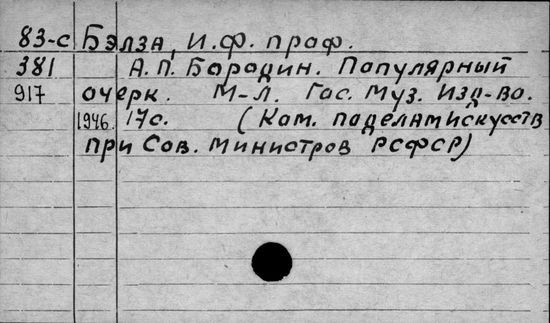 83-с Бэлза, И.Ф. проф.
381 А.П. Бородин. Популярный
917 очерк. М-Л. Гос. Муз. Изд-во.
1946. 17с. (Ком. по делам искусств
при Сов. Министров РСФСР)